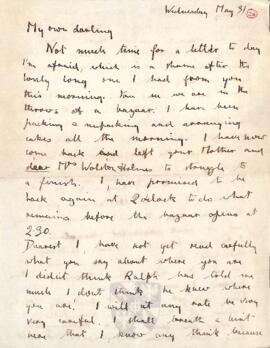 Wednesday May 31
My own darling
Not much time for a letter to day
I'm afraid, which is a shame after the
lovely long one I had from you
this morning. For we are in the
throes of a bazaar. I have been
packing & unpacking and arranging
cakes all the morning. I have now
come back and left your Mother and
dear Mrs Holmes to struggle to
a finish. I have promised to be
back again at 2 o'clock to do what
remains before the bazaar opens at
2.30.
Dearest I have not yet read carefully
what you say about where you are
I didn't think Ralph has told me
much I don't think he knew where
you are. I will at any rate be very
very careful. I shall breath a hint
here that I know any think because